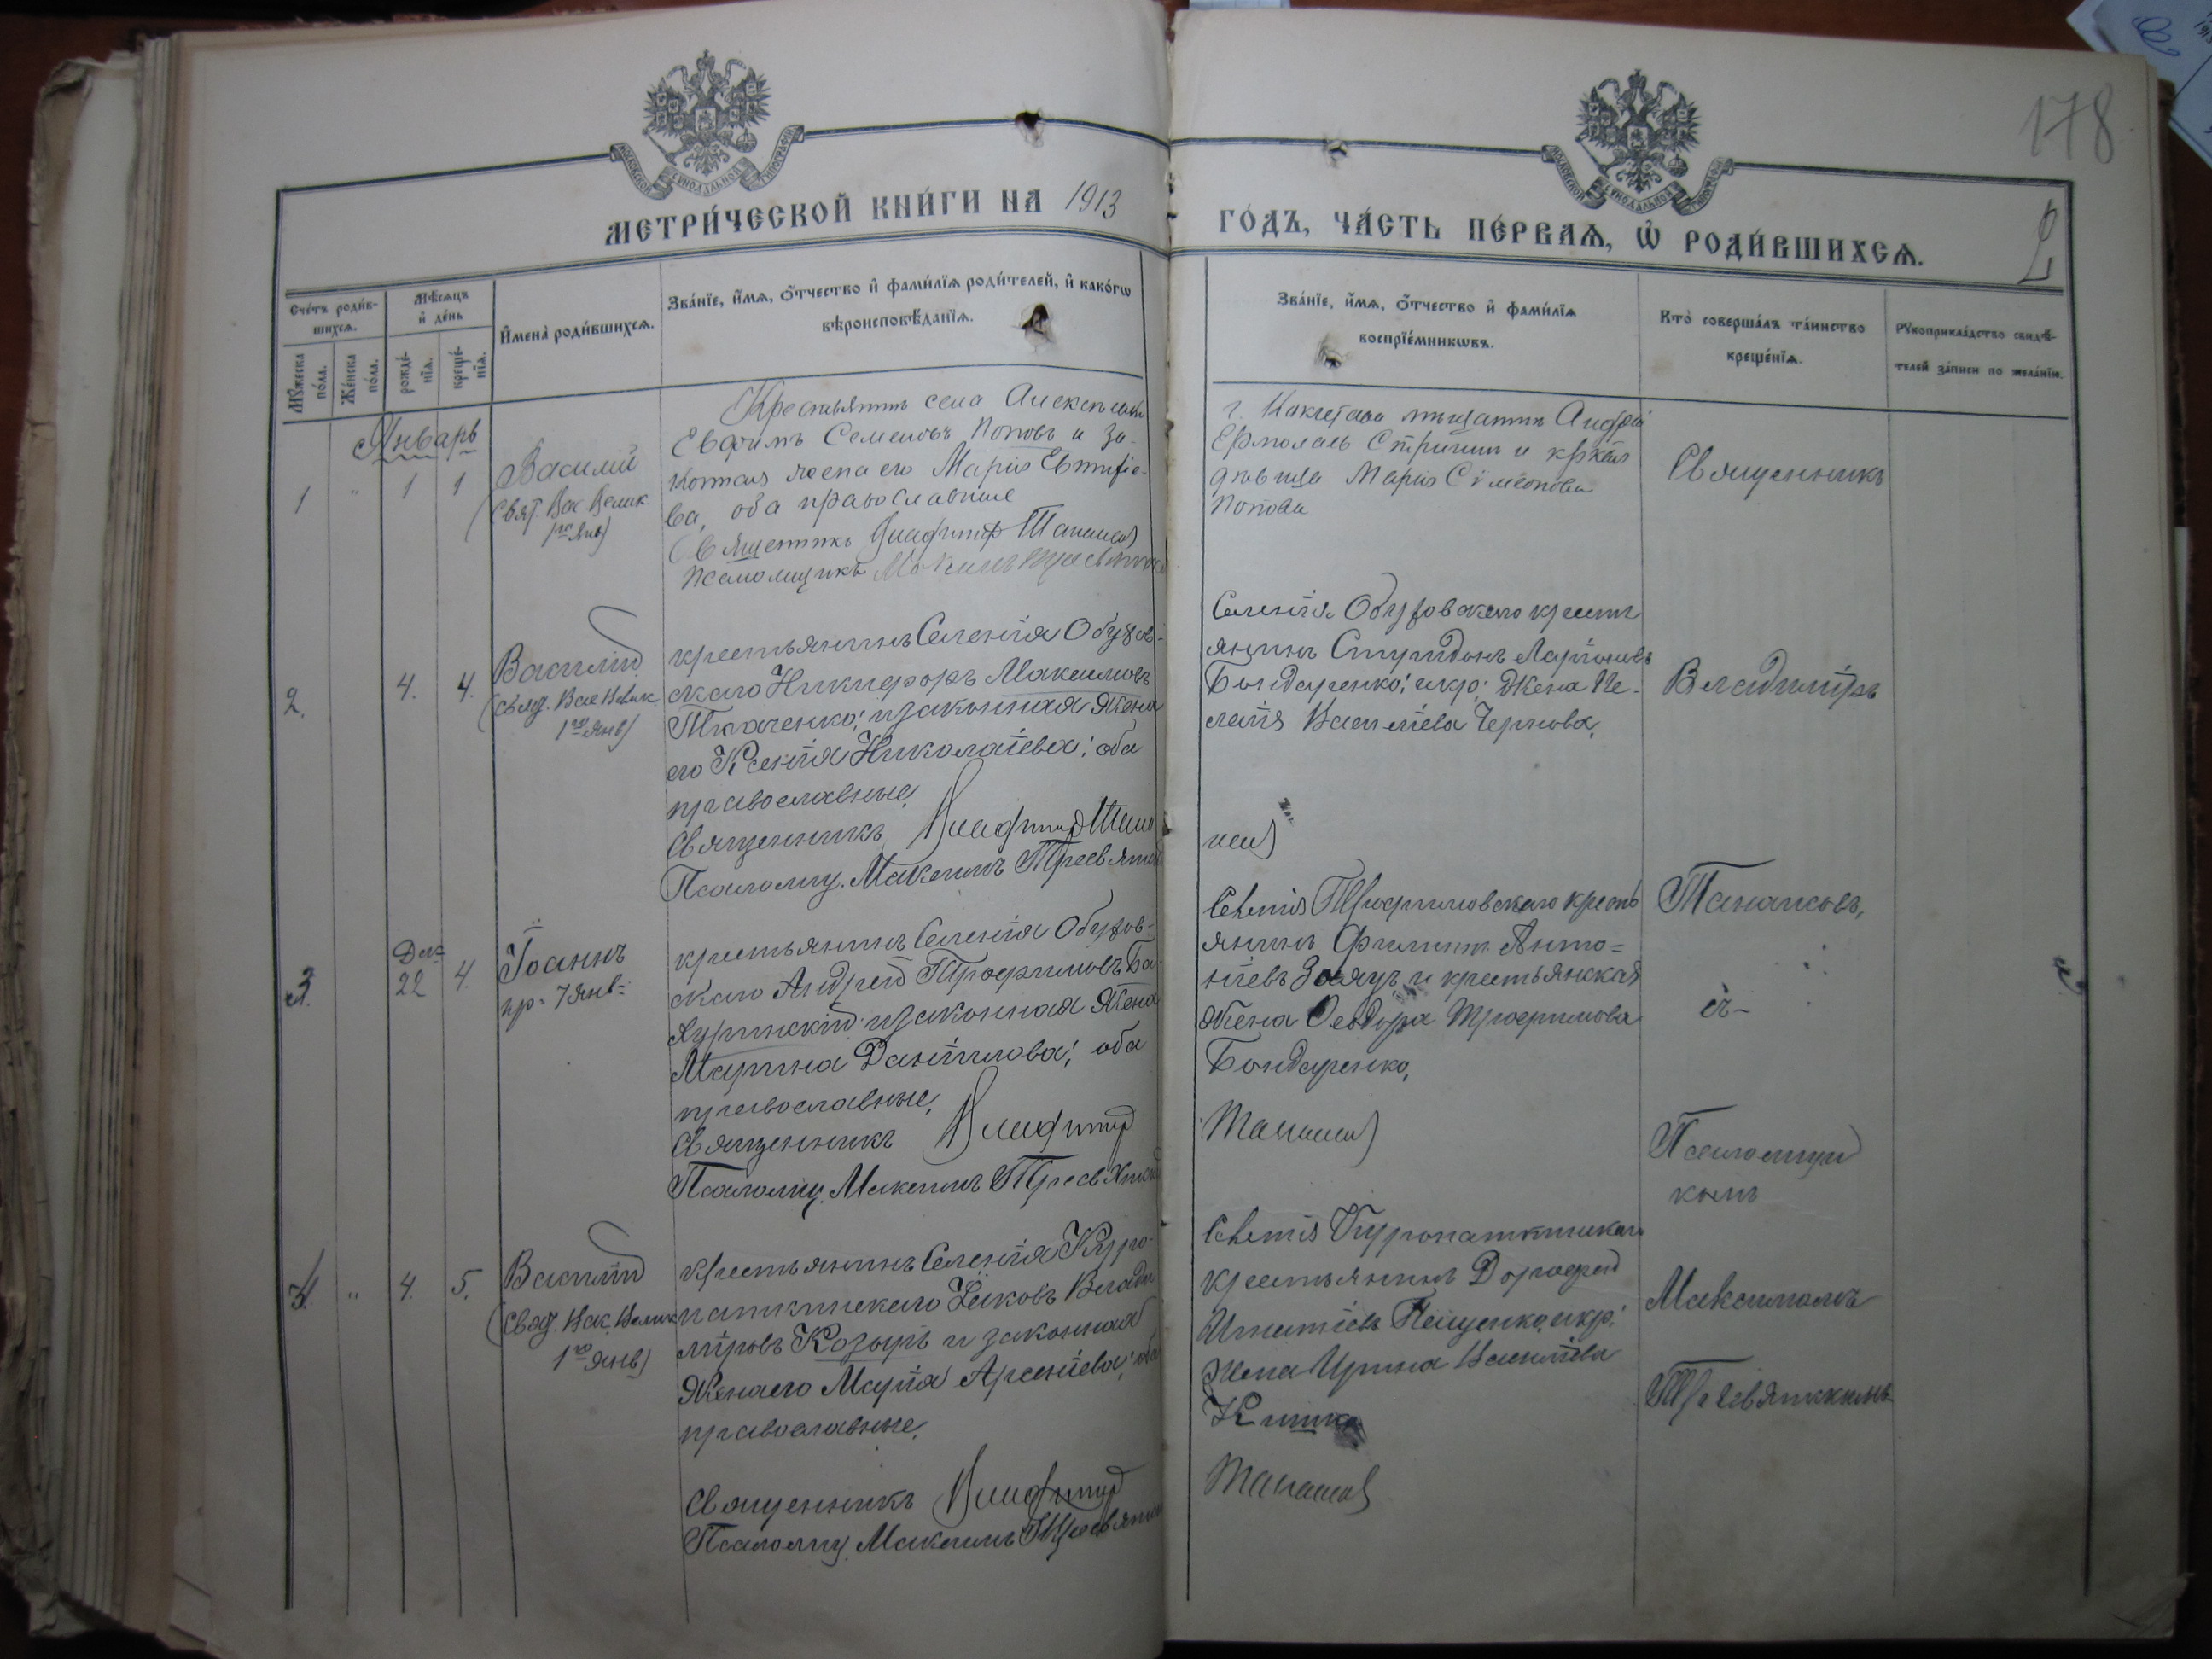 178
МОСКОВСКОЙ СѴНОДАЛЬНОЙ ТИПОГРАФІИ
МОСКОВСКОЙ СѴНОДАЛЬНОЙ ТИПОГРАФІИ
МЕТРИ́ЧЕСКОЙ КНИ́ГИ НА 1913
ГО́ДЪ, ЧА́СТЬ ПЕ́РВАѦ, Ѡ҆ РОДИ́ВШИХСѦ.
2
Сче́тъ роди́в-
шихсѧ.
Мꙋ́жеска по́ла.
Же́нска по́ла.
Мѣ́сѧцъ
и҆ де́нь
рожде́-
нїѧ.
креще́-
нїѧ.
И҆мена̀ роди́вшихсѧ.
Зва́нїе, и҆́мѧ, ѻ҆́тчество и҆ фами́лїѧ роди́телей, и҆ како́гѡ
вѣроисповѣ́данїѧ.
Зва́нїе, и҆́мѧ, ѻ҆́тчество и҆ фами́лїѧ
воспрїе́мникѡвъ.
Кто̀ соверша́лъ та́инство
креще́нїѧ.
Рꙋкоприкла́дство свидѣ́-
телей за́писи по жела́нїю.
Январь
1 " 1 1
Василій
(Свят. Вас Велик.
1го Янв)
Крестьянинъ села
Евфимъ Семеновъ Поповъ и за-
конная жена его Марія
ва, оба православные
Священникъ Владимір Танаисов
Псаломщикъ Максимъ
г. Кокчетава мѣщанин Андрей
Ермолаев и
дѣвица Марія Симеонова
Попова
Священникъ
2. 4. 4.
Василій
(Свят. Вас Велик
1го Янв)
крестьянинъ Селенія Обухов-
скаго Никифоръ Максимовъ
Ткаченко; и законная жена
его Ксенія Николаіева; оба
православные.
Священникъ Владимір Танаи
Псаломщ. Максимъ Тресвятск
Селенія Обуховскаго крест
янинъ Спиридонъ Ларіоновъ
Бондаренко; и кр. жена Пе-
лагія Василіева Чернова.
исов
Владиміръ
3. Дек 22 4.
Іоаннъ
пр. 7 Янв.
крестьянинъ Селенія Обухов-
скаго Андрей Трофимовъ Ба-
и законная жена
Марина Даніилова; оба
православные.
Священникъ Владимір
Псаломщ. Максимъ Тресвятск
Селенія Трофимовскаго крестъ
янинъ Филипп Анто=
ніевъ Заяцъ и крестьянская
жена Феодора Трофимова
Бондаренко.
Танаисов
Танаисовъ,
съ-
4. " 4. 5.
Василій
(Свят. Вас. Велик
1го Янв)
крестьянинъ Селенія Куро-
паткинскаго Іаковъ Влади
міровъ Козыръ и законная
жена его Марія Арсеніева; оба
православные.
Священникъ Владимір
Псаломщ. Максимъ Тресвятск
Селенія Куропаткинскаго
крестьянинъ Дорофей
Игнатіевъ Пащенко, и кр.
жена Ирина Василіева
Танаисов
Псаломщи
комъ
Максимомъ
Тресвятскимъ